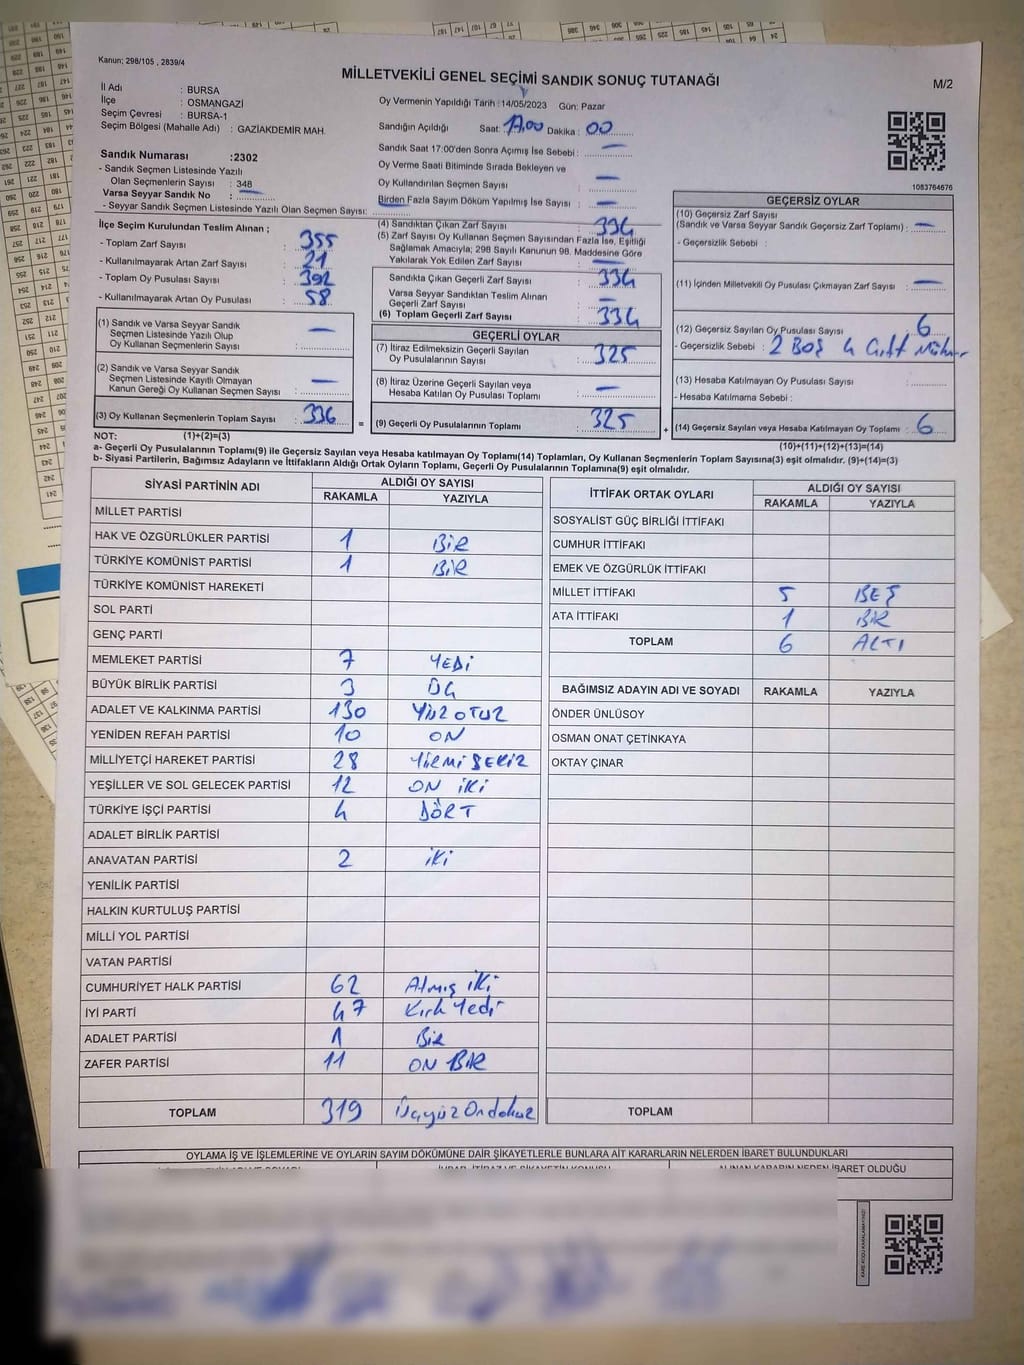 Kanun; 298/105 , 2839/4
MİLLETVEKİLİ GENEL SEÇİMİ SANDIK SONUÇ TUTANAĞI
M/2
İl Adı : BURSA
İlçe : OSMANGAZİ
Seçim Çevresi : BURSA-1
Seçim Bölgesi (Mahalle Adı) : GAZİAKDEMİR MAH.
Oy Vermenin Yapıldığı Tarih :14/05/2023 Gün: Pazar
Sandığın Açıldığı Saat: 17.00 Dakika : 00
Sandık Saat 17:00'den Sonra Açımış İse Sebebi : —
Oy Verme Saati Bitiminde Sırada Bekleyen ve
Oy Kullandırılan Seçmen Sayısı : —
Birden Fazla Sayım Döküm Yapılmış İse Sayısı : —
1083764676
Sandık Numarası :2302
- Sandık Seçmen Listesinde Yazılı
Olan Seçmenlerin Sayısı : 348
Varsa Seyyar Sandık No : —
- Seyyar Sandık Seçmen Listesinde Yazılı Olan Seçmen Sayısı:
İlçe Seçim Kurulundan Teslim Alınan ;
- Toplam Zarf Sayısı : 355
- Kullanılmayarak Artan Zarf Sayısı : 21
- Toplam Oy Pusulası Sayısı : 392
- Kullanılmayarak Artan Oy Pusulası : 58
(1) Sandık ve Varsa Seyyar Sandık
Seçmen Listesinde Yazılı Olup
Oy Kullanan Seçmenlerin Sayısı : —
(2) Sandık ve Varsa Seyyar Sandık
Seçmen Listesinde Kayıtlı Olmayan
Kanun Gereği Oy Kullanan Seçmen Sayısı : —
(3) Oy Kullanan Seçmenlerin Toplam Sayısı : 336 =
(4) Sandıktan Çıkan Zarf Sayısı : 334
(5) Zarf Sayısı Oy Kullanan Seçmen Sayısından Fazla İse, Eşitliği
Sağlamak Amacıyla; 298 Sayılı Kanunun 98. Maddesine Göre
Yakılarak Yok Edilen Zarf Sayısı : —
Sandıkta Çıkan Geçerli Zarf Sayısı : 334
Varsa Seyyar Sandıktan Teslim Alınan
Geçerli Zarf Sayısı : —
(6) Toplam Geçerli Zarf Sayısı : 334
GEÇERLİ OYLAR
(7) İtiraz Edilmeksizin Geçerli Sayılan
Oy Pusulalarının Sayısı : 325
(8) İtiraz Üzerine Geçerli Sayılan veya
Hesaba Katılan Oy Pusulası Toplamı : —
(9) Geçerli Oy Pusulalarının Toplamı : 325 +
GEÇERSİZ OYLAR
(10) Geçersiz Zarf Sayısı
(Sandık ve Varsa Seyyar Sandık Geçersiz Zarf Toplamı) : —
- Geçersizlik Sebebi :
(11) İçinden Milletvekili Oy Pusulası Çıkmayan Zarf Sayısı : —
(12) Geçersiz Sayılan Oy Pusulası Sayısı : 6
- Geçersizlik Sebebi : 2 BOŞ 4 Çift Mühür
(13) Hesaba Katılmayan Oy Pusulası Sayısı :
- Hesaba Katılmama Sebebi :
(14) Geçersiz Sayılan veya Hesaba Katılmayan Oy Toplamı : 6
NOT: (1)+(2)=(3)
(10)+(11)+(12)+(13)=(14)
a- Geçerli Oy Pusulalarının Toplamı(9) ile Geçersiz Sayılan veya Hesaba katılmayan Oy Toplamı(14) Toplamları, Oy Kullanan Seçmenlerin Toplam Sayısına(3) eşit olmalıdır. (9)+(14)=(3)
b- Siyasi Partilerin, Bağımsız Adayların ve İttifakların Aldığı Ortak Oyların Toplamı, Geçerli Oy Pusulalarının Toplamına(9) eşit olmalıdır.
SİYASİ PARTİNİN ADI ALDIĞI OY SAYISI
RAKAMLA YAZIYLA
MİLLET PARTİSİ
HAK VE ÖZGÜRLÜKLER PARTİSİ 1 BİR
TÜRKİYE KOMÜNİST PARTİSİ 1 BİR
TÜRKİYE KOMÜNİST HAREKETİ
SOL PARTİ
GENÇ PARTİ
MEMLEKET PARTİSİ 7 YEDİ
BÜYÜK BİRLİK PARTİSİ 3 ÜÇ
ADALET VE KALKINMA PARTİSİ 130 YÜZ OTUZ
YENİDEN REFAH PARTİSİ 10 ON
MİLLİYETÇİ HAREKET PARTİSİ 28 YİRMİ SEKİZ
YEŞİLLER VE SOL GELECEK PARTİSİ 12 ON İKİ
TÜRKİYE İŞÇİ PARTİSİ 4 DÖRT
ADALET BİRLİK PARTİSİ
ANAVATAN PARTİSİ 2 İKİ
YENİLİK PARTİSİ
HALKIN KURTULUŞ PARTİSİ
MİLLİ YOL PARTİSİ
VATAN PARTİSİ
CUMHURİYET HALK PARTİSİ 62 Atmış iki
İYİ PARTİ 47 Kırk Yedi
ADALET PARTİSİ 1 Bir
ZAFER PARTİSİ 11 ON BİR
TOPLAM 319 Üçyüz Ondokuz
İTTİFAK ORTAK OYLARI ALDIĞI OY SAYISI
RAKAMLA YAZIYLA
SOSYALİST GÜÇ BİRLİĞİ İTTİFAKI
CUMHUR İTTİFAKI
EMEK VE ÖZGÜRLÜK İTTİFAKI
MİLLET İTTİFAKI 5 BEŞ
ATA İTTİFAKI 1 BİR
TOPLAM 6 ALTI
BAĞIMSIZ ADAYIN ADI VE SOYADI RAKAMLA YAZIYLA
ÖNDER ÜNLÜSOY
OSMAN ONAT ÇETİNKAYA
OKTAY ÇINAR
TOPLAM
OYLAMA İŞ VE İŞLEMLERİNE VE OYLARIN SAYIM DÖKÜMÜNE DAİR ŞİKAYETLERLE BUNLARA AİT KARARLARIN NELERDEN İBARET BULUNDUKLARI
ALINAN KARARIN NEDEN İBARET OLDUĞU